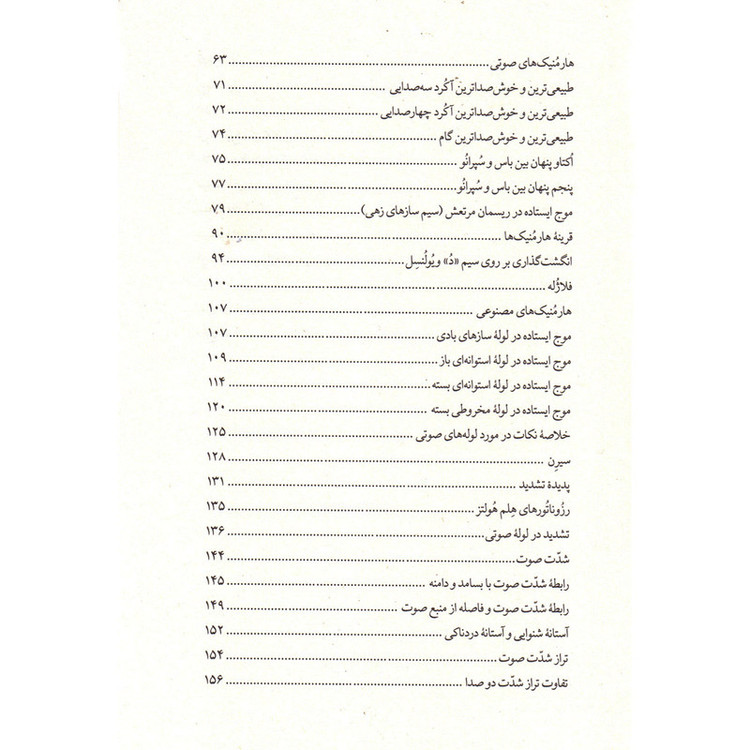 هارمُنیک‌های صوتی ........................................ ۶۳
طبیعی‌ترین و خوش‌صداترین آکُرد سه‌صدایی ........................................ ۷۱
طبیعی‌ترین و خوش‌صداترین آکُرد چهارصدایی ........................................ ۷۲
طبیعی‌ترین و خوش‌صداترین گام ........................................ ۷۴
اُکتاو پنهان بین باس و سُپرانُو ........................................ ۷۵
پنجم پنهان بین باس و سُپرانُو ........................................ ۷۷
موج ایستاده در ریسمان مرتعش (سیم سازهای زهی) ........................................ ۷۹
قرینهٔ هارمُنیک‌ها ........................................ ۹۰
انگشت‌گذاری بر روی سیم «دُ» ویُولُنسِل ........................................ ۹۴
فلاژُله ........................................ ۱۰۰
هارمُنیک‌های مصنوعی ........................................ ۱۰۷
موج ایستاده در لولهٔ سازهای بادی ........................................ ۱۰۷
موج ایستاده در لولهٔ استوانه‌ای باز ........................................ ۱۰۹
موج ایستاده در لولهٔ استوانه‌ای بسته ........................................ ۱۱۴
موج ایستاده در لولهٔ مخروطی بسته ........................................ ۱۲۰
خلاصهٔ نکات در مورد لوله‌های صوتی ........................................ ۱۲۵
سیرِن ........................................ ۱۲۸
پدیدهٔ تشدید ........................................ ۱۳۱
رِزُوناتُورهای هِلم هُولتز ........................................ ۱۳۵
تشدید در لولهٔ صوتی ........................................ ۱۳۶
شدّت صوت ........................................ ۱۴۴
رابطهٔ شدّت صوت با بسامد و دامنه ........................................ ۱۴۵
رابطهٔ شدّت صوت و فاصله از منبع صوت ........................................ ۱۴۹
آستانهٔ شنوایی و آستانهٔ دردناکی ........................................ ۱۵۲
تراز شدّت صوت ........................................ ۱۵۴
تفاوت تراز شدّت دو صدا ........................................ ۱۵۶